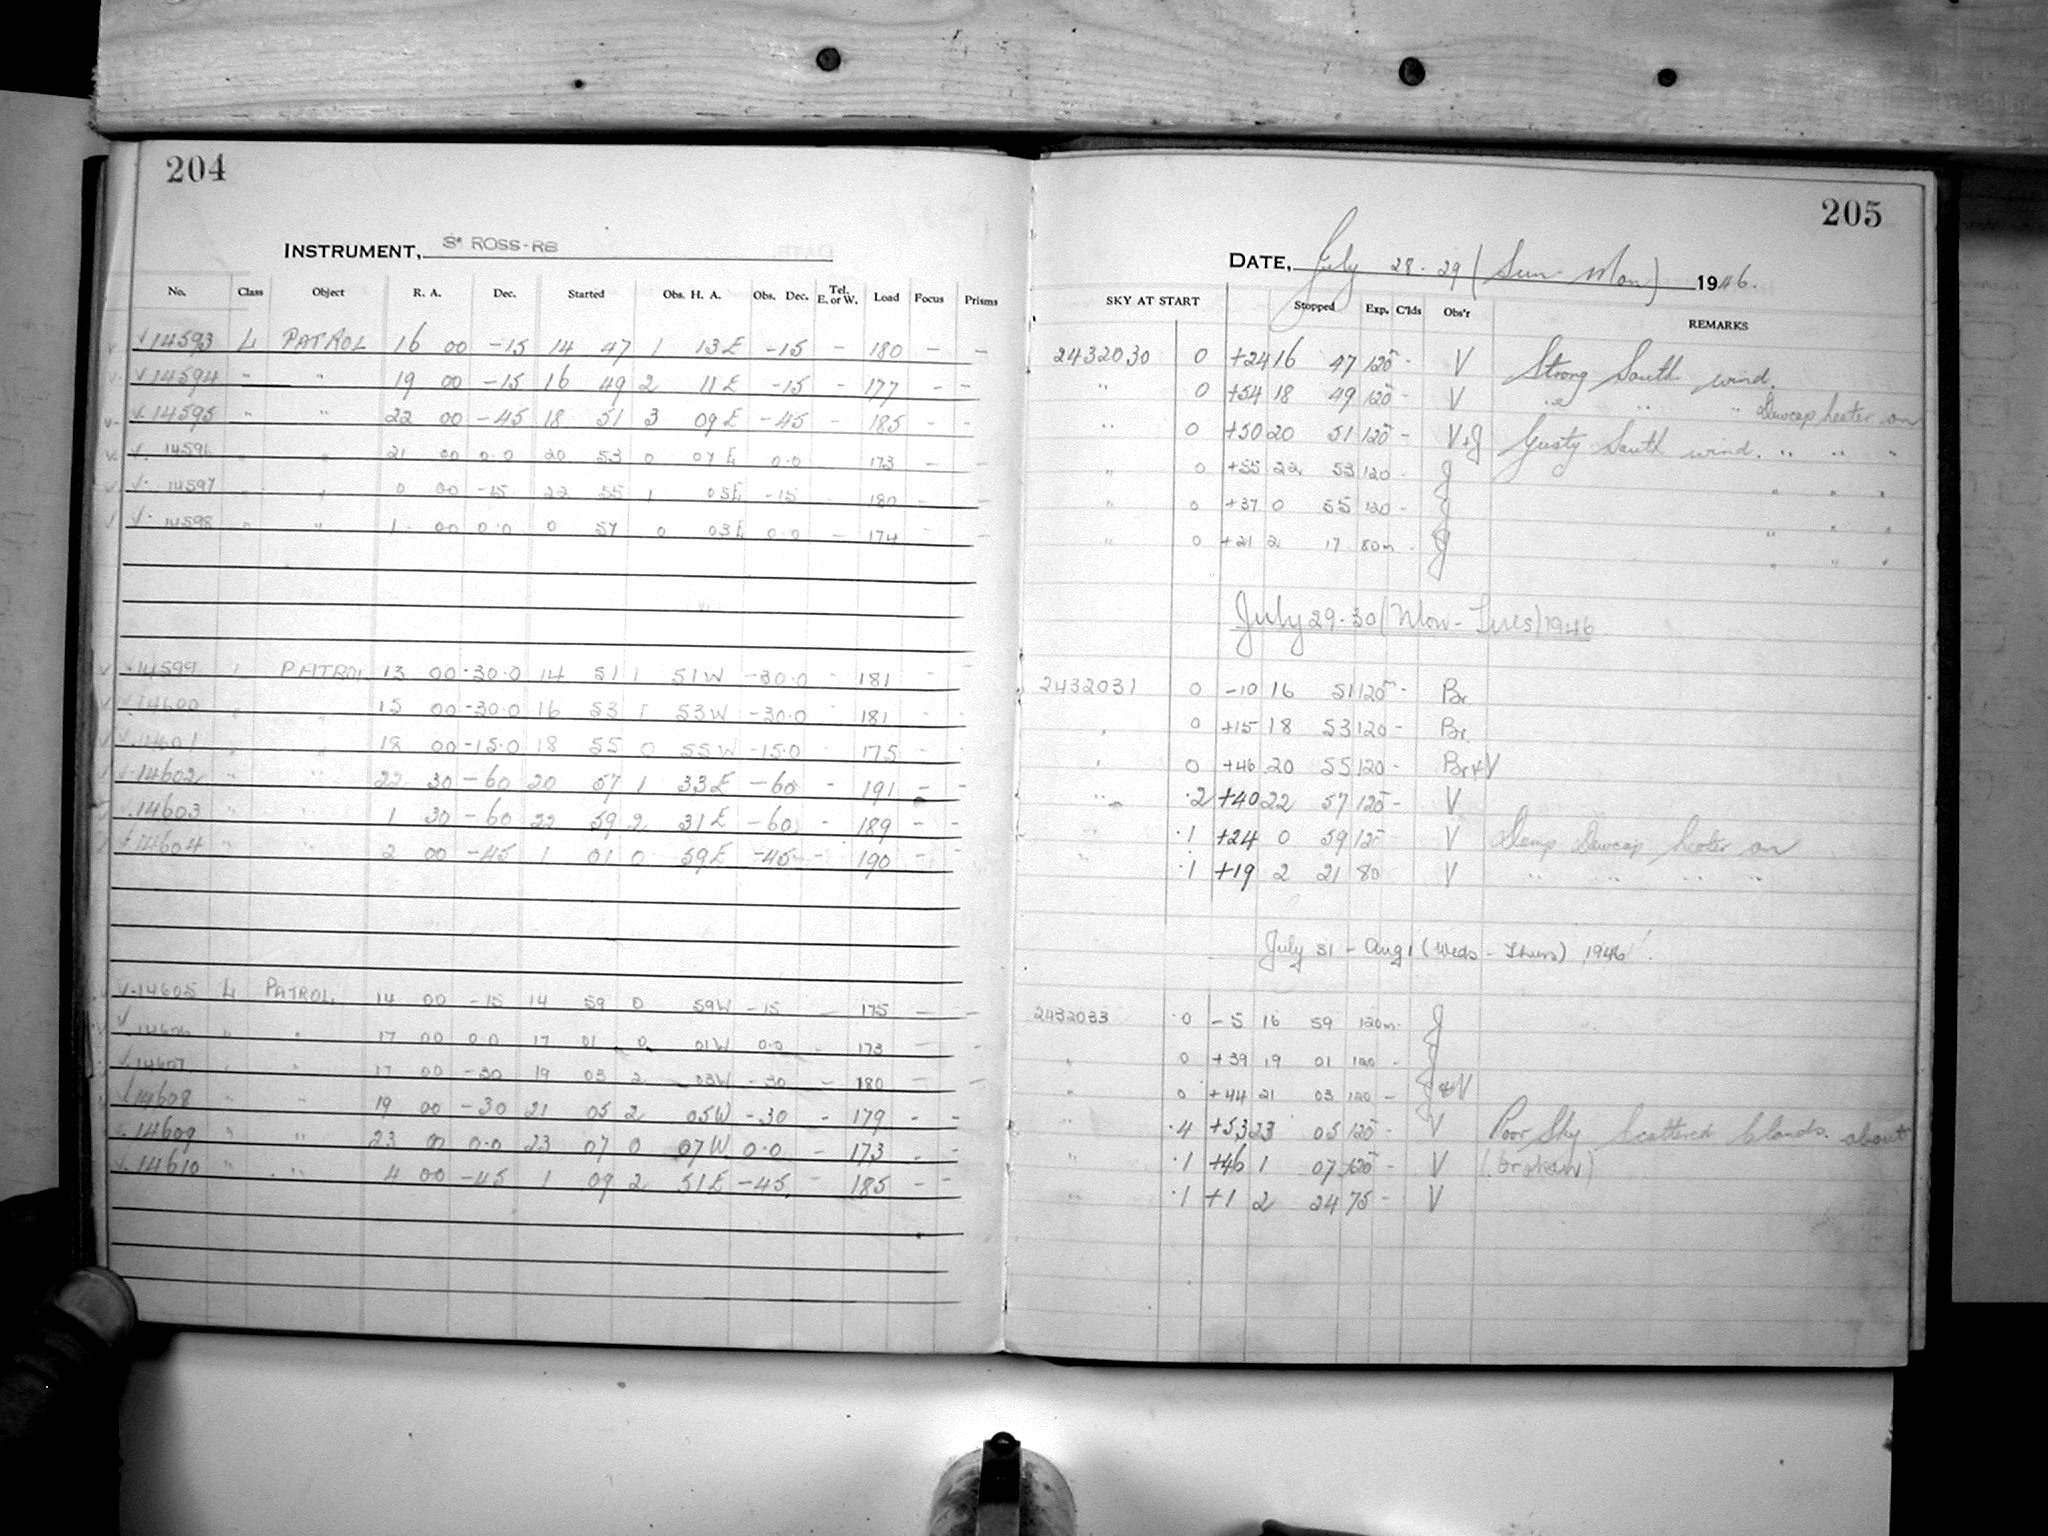 204
INSTRUMENT, ROSS-RB
No. Class Object R. A. Dec. Started Obs. H. A. Obs. Dec. Tel. E. or W. Load Focus Prisms
14593 L PATROL 16 00 -15 14 47 1 13E -15 - 180 - -
14594 " " 19 00 -15 16 49 2 11E -15 - 177 - -
14595 " " 22 00 -45 18 51 3 09E -45 - 185 - -
14596 " " 21 00 0.0 20 53 0 07E 0.0 - 173 - -
14597 " " 0 00 -15 22 55 1 05E -15 - 180 - -
14598 " " 1 00 0.0 0 57 0 03E 0.0 - 174 - -
14599 PATROL 13 00 -30.0 14 51 1 51W -30.0 - 181 - -
14600 " " 15 00 -30.0 16 53 1 53W -30.0 - 181 - -
14601 " " 18 00 -15.0 18 55 0 55W -15.0 - 175 - -
14602 " " 22 30 -60 20 57 1 33E -60 - 191 - -
14603 " " 1 30 -60 22 59 2 31E -60 - 189 - -
14604 " " 2 00 -45 1 01 0 59E -45 - 190 - -
14605 L PATROL 14 00 -15 14 59 0 59W -15 - 175 - -
14606 " " 17 00 0.0 17 01 0 01W 0.0 - 173 - -
14607 " " 17 00 -30 19 03 2 03W -30 - 180 - -
14608 " " 19 00 -30 21 05 2 05W -30 - 179 - -
14609 " " 23 00 0.0 23 07 0 07W 0.0 - 173 - -
14610 " " 4 00 -45 1 09 2 51E -45 - 185 - -
205
DATE, July 28-29 (Sun-Mon) 1946.
SKY AT START Stopped Exp. C'lds Obs'r REMARKS
2432030 0 +24 16 47 120m - V Strong South wind.
" 0 +54 18 49 120 - V " " " Dewcap heater on
" 0 +50 20 51 120 - V+J Gusty South wind. " " "
" 0 +55 22 53 120 - J " " "
" 0 +37 0 55 120 - J " " "
" 0 +21 2 17 80m - J " " "
July 29-30 (Mon-Tues) 1946
2432031 0 -10 16 51 120m - Br
" 0 +15 18 53 120 - Br
" 0 +46 20 55 120 - Br+V
" .2 +40 22 57 120 - V
" .1 +24 0 59 120 V Damp Dewcap heater on
" .1 +19 2 21 80 V " " " "
July 31 - Aug 1 (Weds - Thurs) 1946
2432033 .0 -5 16 59 120m. J
" 0 +39 19 01 120 - J
" 0 +44 21 03 120 - J+V
" .4 +53 23 05 120 - V Poor Sky Scattered Clouds about
" .1 +46 1 07 120 - V (broken)
" .1 +1 2 24 75 - V